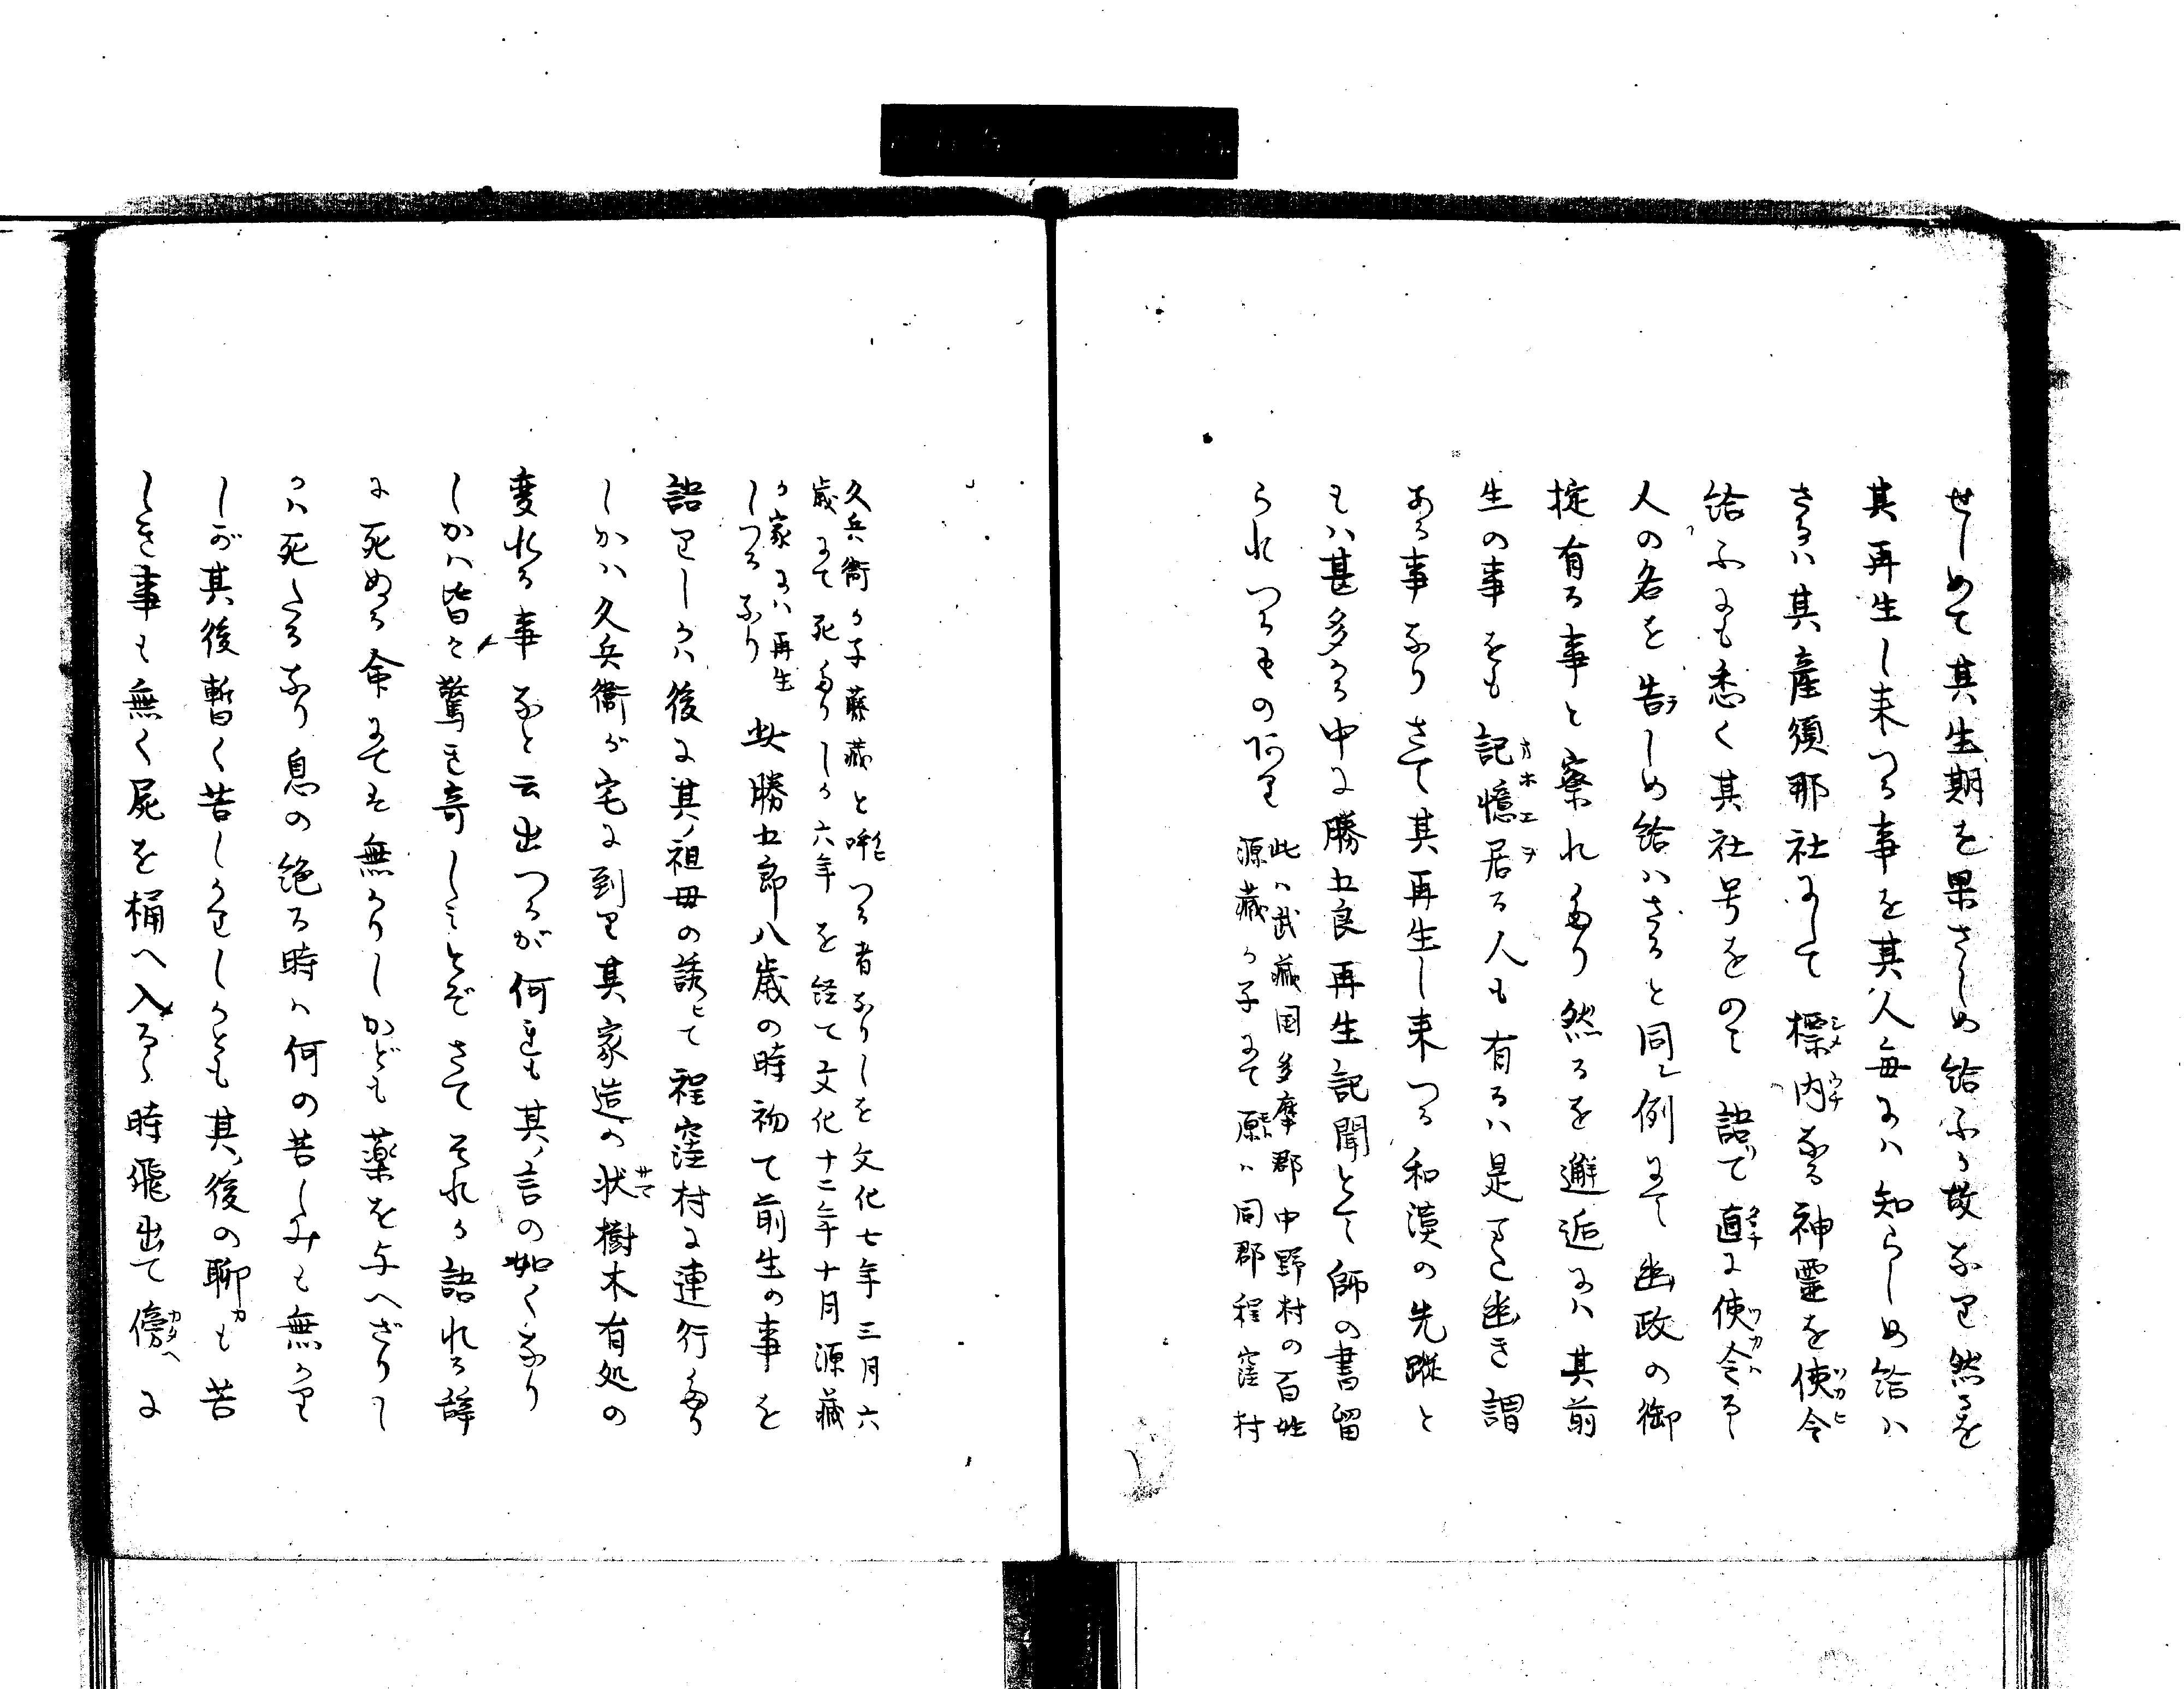 せしめて其生期を果さしめ給ふか故なり然るを
其再生し来つる事を其人毎には知らしめ給は
さるは其産須那社にして標内なる神霊を使令
給ふにも悉く其社号をのみ詔て直に使令る
人の名を告しめ給はさると同し例にて幽政の御
掟有る事と察れたり然るを邂逅には其前
生の事をも記憶居る人も有るは是また幽き謂
ある事なりさて其再生し来つる和漢の先蹤と
もは甚多かる中に勝五良再生記聞とて師の書留
られつるものあり
此は武蔵国多摩郡中野村の百姓
源蔵か子にて原は同郡程窪村
久兵衛か子藤蔵と呼つる者なりしを文化七年三月六
歳にて死たりしか六年を経て文化十二年十月源蔵
か家には再生
しつるなり
此勝五郎八歳の時初て前生の事を
語りしかは後に其祖母の誘ひて程窪村に連行たり
しかは久兵衛が宅に到り其家造の状樹木有処の
変れる事なと云出つるが何れも其言の如くなり
しかは皆々驚き奇しみとぞさてそれか語れる辞
に死ぬる命にてを無かりしかども薬を与へざりし
かは死たるなり息の絶る時は何の苦しみも無かり
しが其後暫く苦しかりしかとも其後の聊も苦
しき事も無く屍を桶へ入るゝ時飛出て傍に